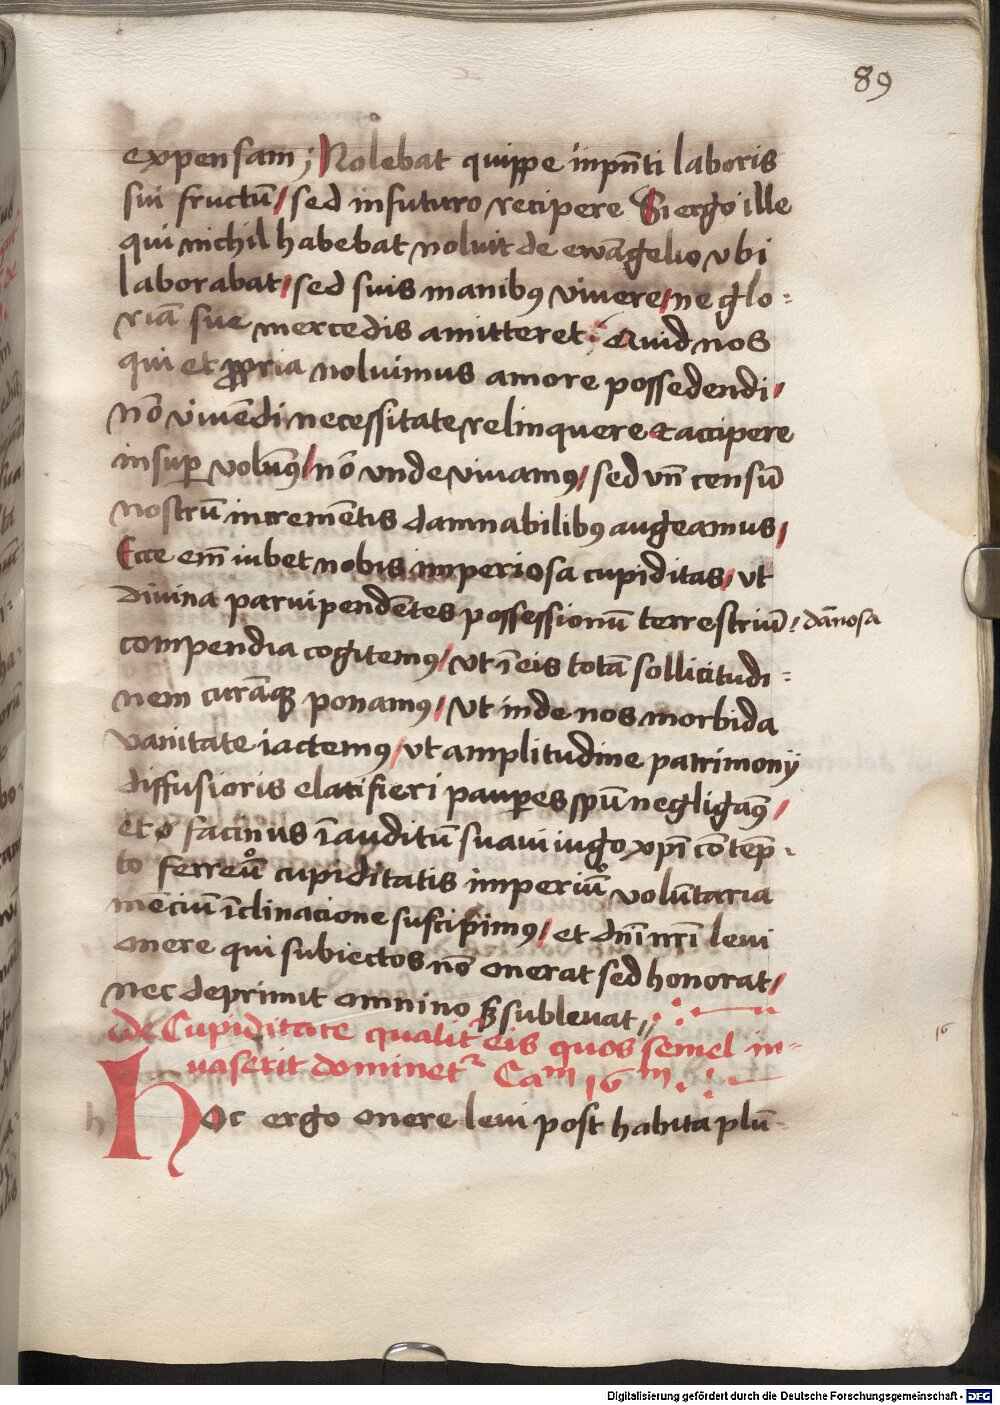 89
expensam; Nolebat quippe inpn̄ti laboris
sui fructū/ sed in futuro recipere Si ergo ille
qui nichil habebat noluit de ewāgelio vbi
laborabat/ sed suis manibꝯ vivere/ ne glo⸗
riā sue mercedis amitteret: Quid nos
qui et ꝓpria noluimus amore possedendi/
nō vivēdi necessitate relinquere et accipere
insuꝑ volūꝯ/ nō vnde vivamꝯ/ sed vn̄ censū
nostrū incremētis damnabilibꝯ augeamus/
Ecce em̄ iubet nobis imperiosa cupiditas/ vt
divina parvipendētes possessionū terrestriū/ dānosa
compendia cogitemꝯ/ vt ī eis totā sollicitudi⸗
nem curāqꝫ ponamꝯ/ vt inde nos morbida
vanitate iactemꝯ/ vt amplitudine patrimonij
diffusioris elati fieri pauꝑes spū negligāꝯ/
et o facinus īauditū suavi iugo xpī cōtēp⸗
to ferreū cupiditatis imperiū volūtaria
mēciū īclinacione suscipimꝯ/ et dnī nrī levi
onere qui subiectos nō onerat sed honorat/
nec deprimit omnino sꝫ sublevat//
de Cupiditate qualit̄ eis quos semel in⸗
vaserit dominetᷣ Cam 16m
Hoc ergo onere levi post habita plū⸗
h
16
Digitalisierung gefördert durch die Deutsche Forschungsgemeinschaft - DFG